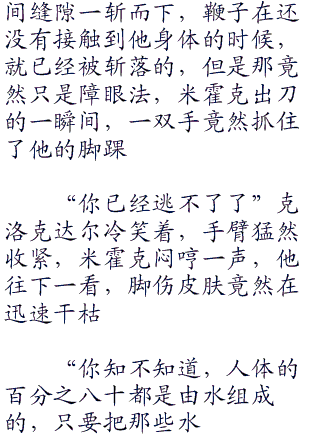 间缝隙一斩而下，鞭子在还
没有接触到他身体的时候，
就已经被斩落的，但是那竟
然只是障眼法，米霍克出刀
的一瞬间，一双手竟然抓住
了他的脚踝
“你已经逃不了了”克
洛克达尔冷笑着，手臂猛然
收紧，米霍克闷哼一声，他
往下一看，脚伤皮肤竟然在
迅速干枯
“你知不知道，人体的
百分之八十都是由水组成
的，只要把那些水